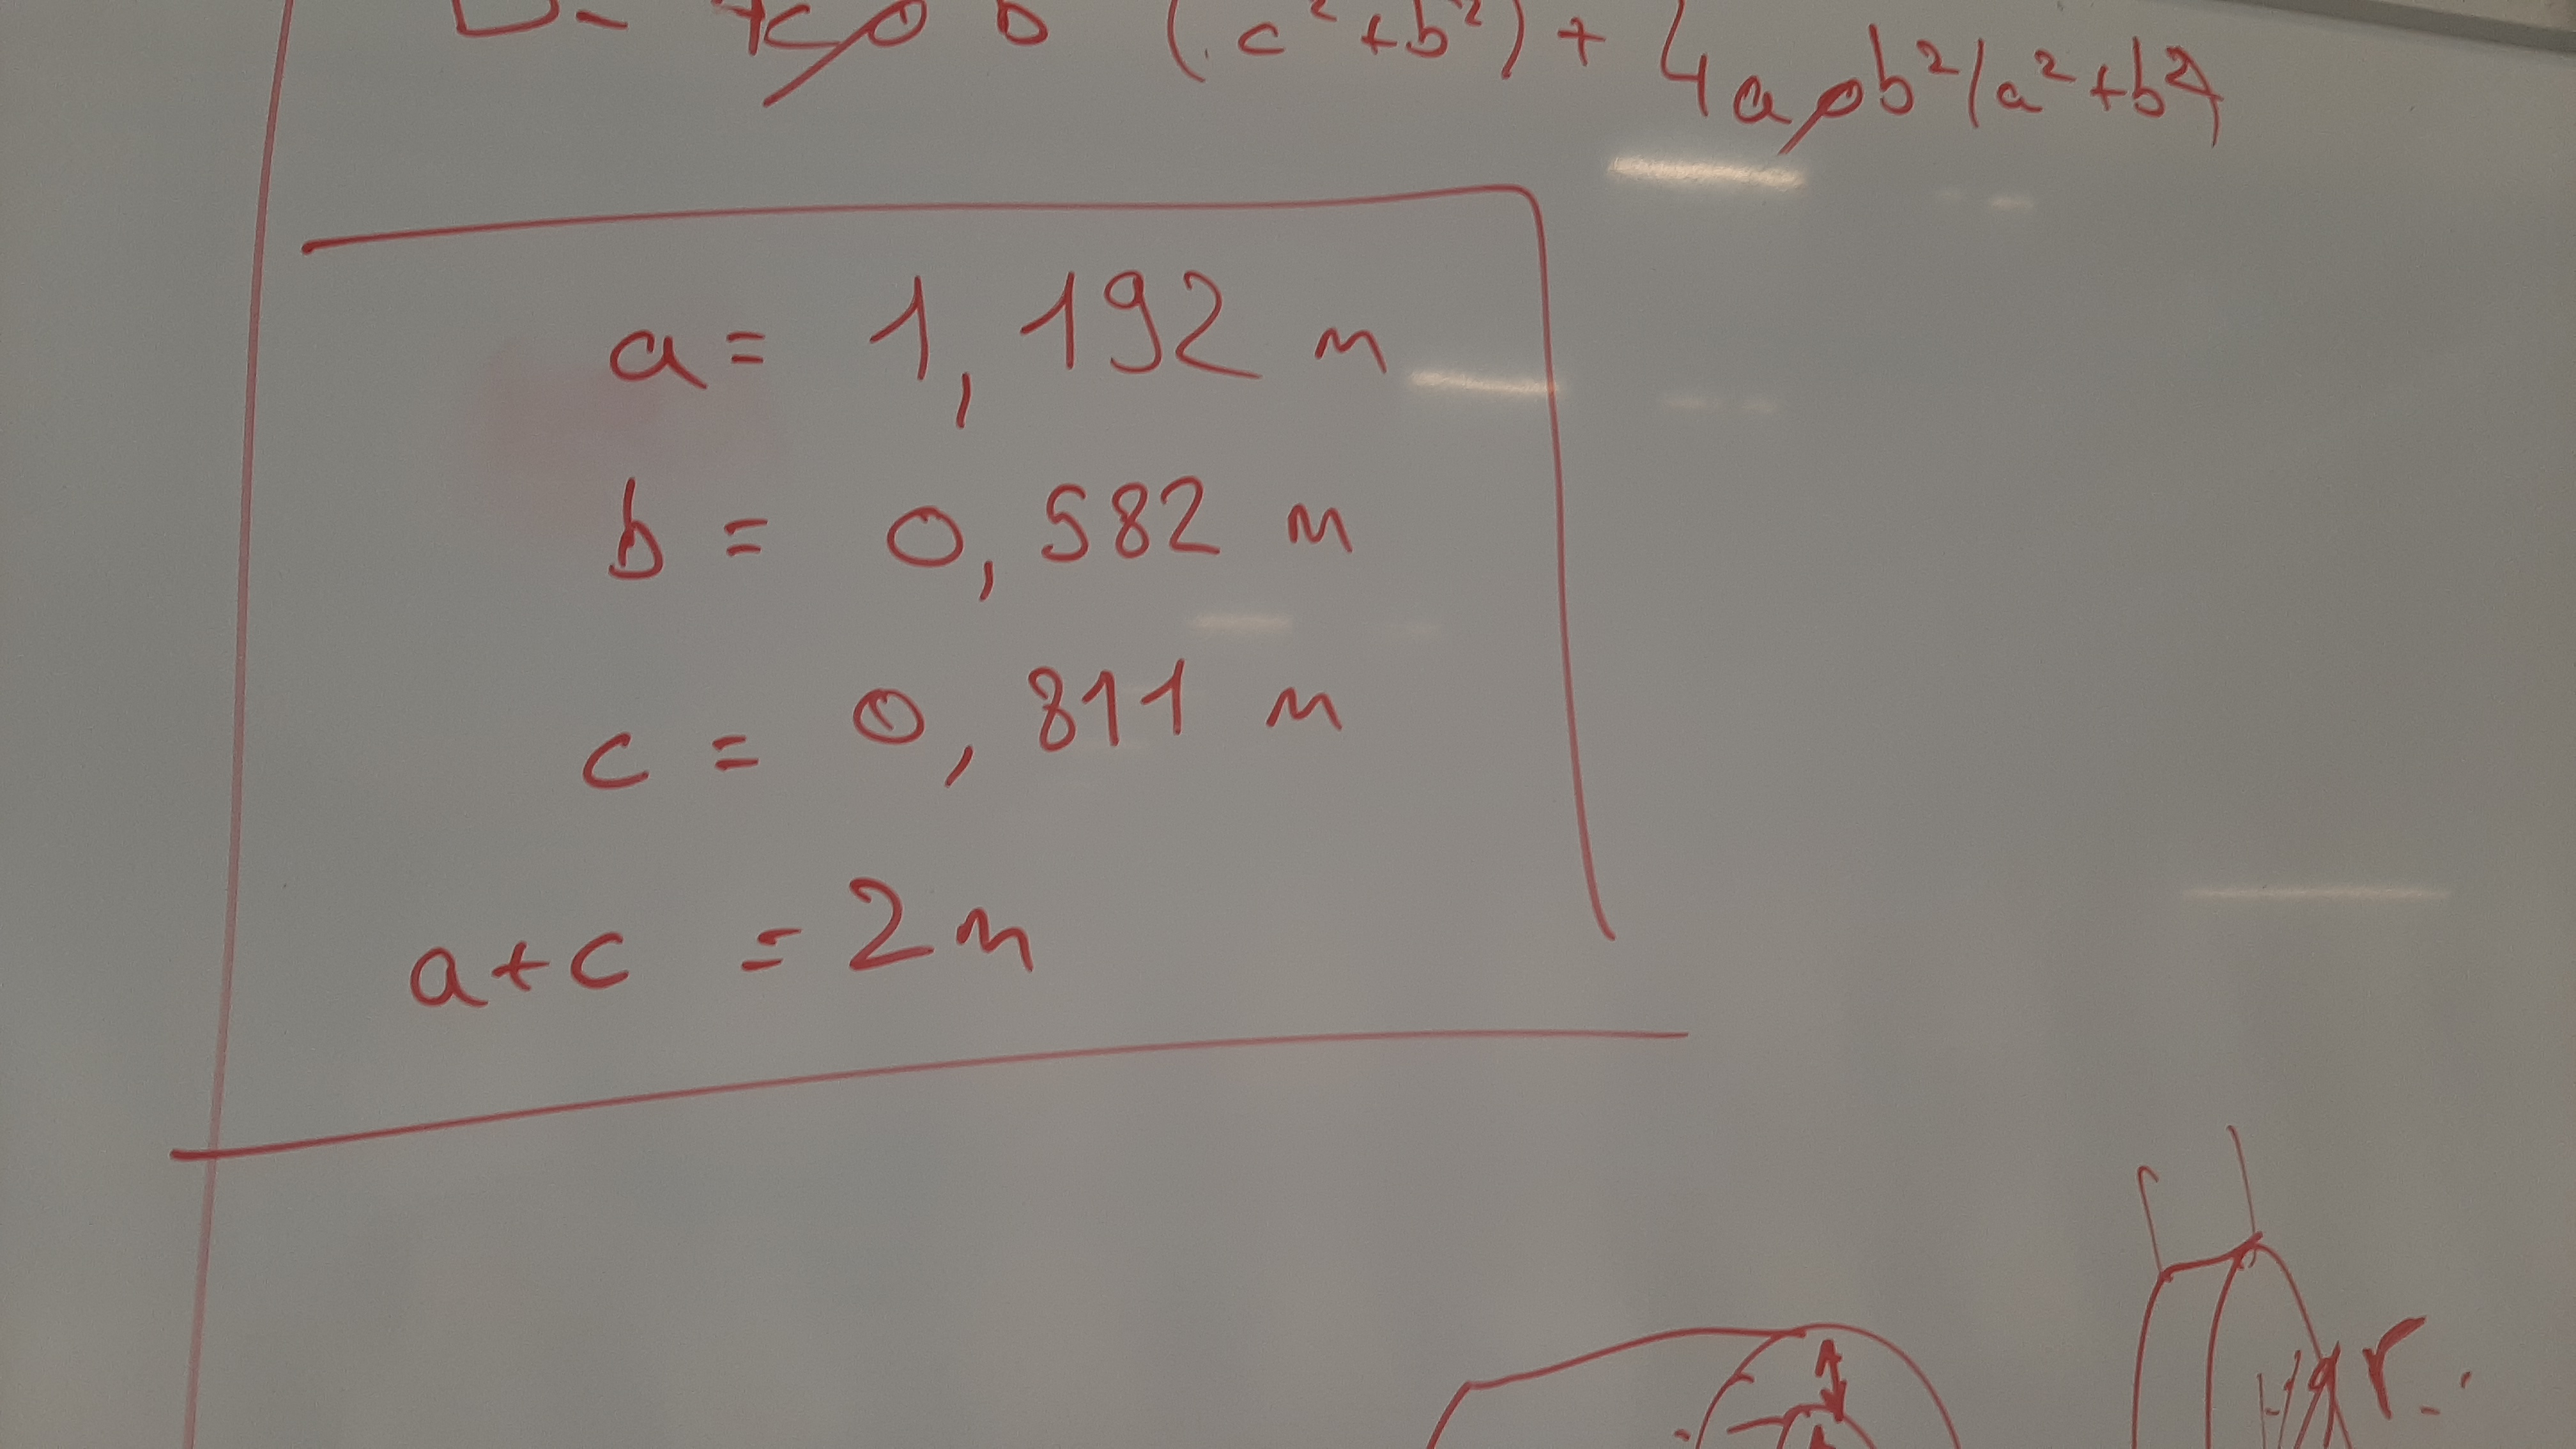 (c²+b²) + 4aρb²(a²+b²)
a = 1,192 m
b = 0,582 m
c = 0,811 m
a+c = 2m
r.